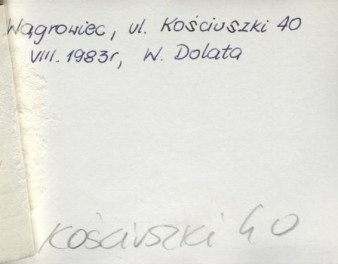 Wągrowiec, ul. Kościuszki 40
VIII. 1983r, W. Dolata
Kościuszki 40